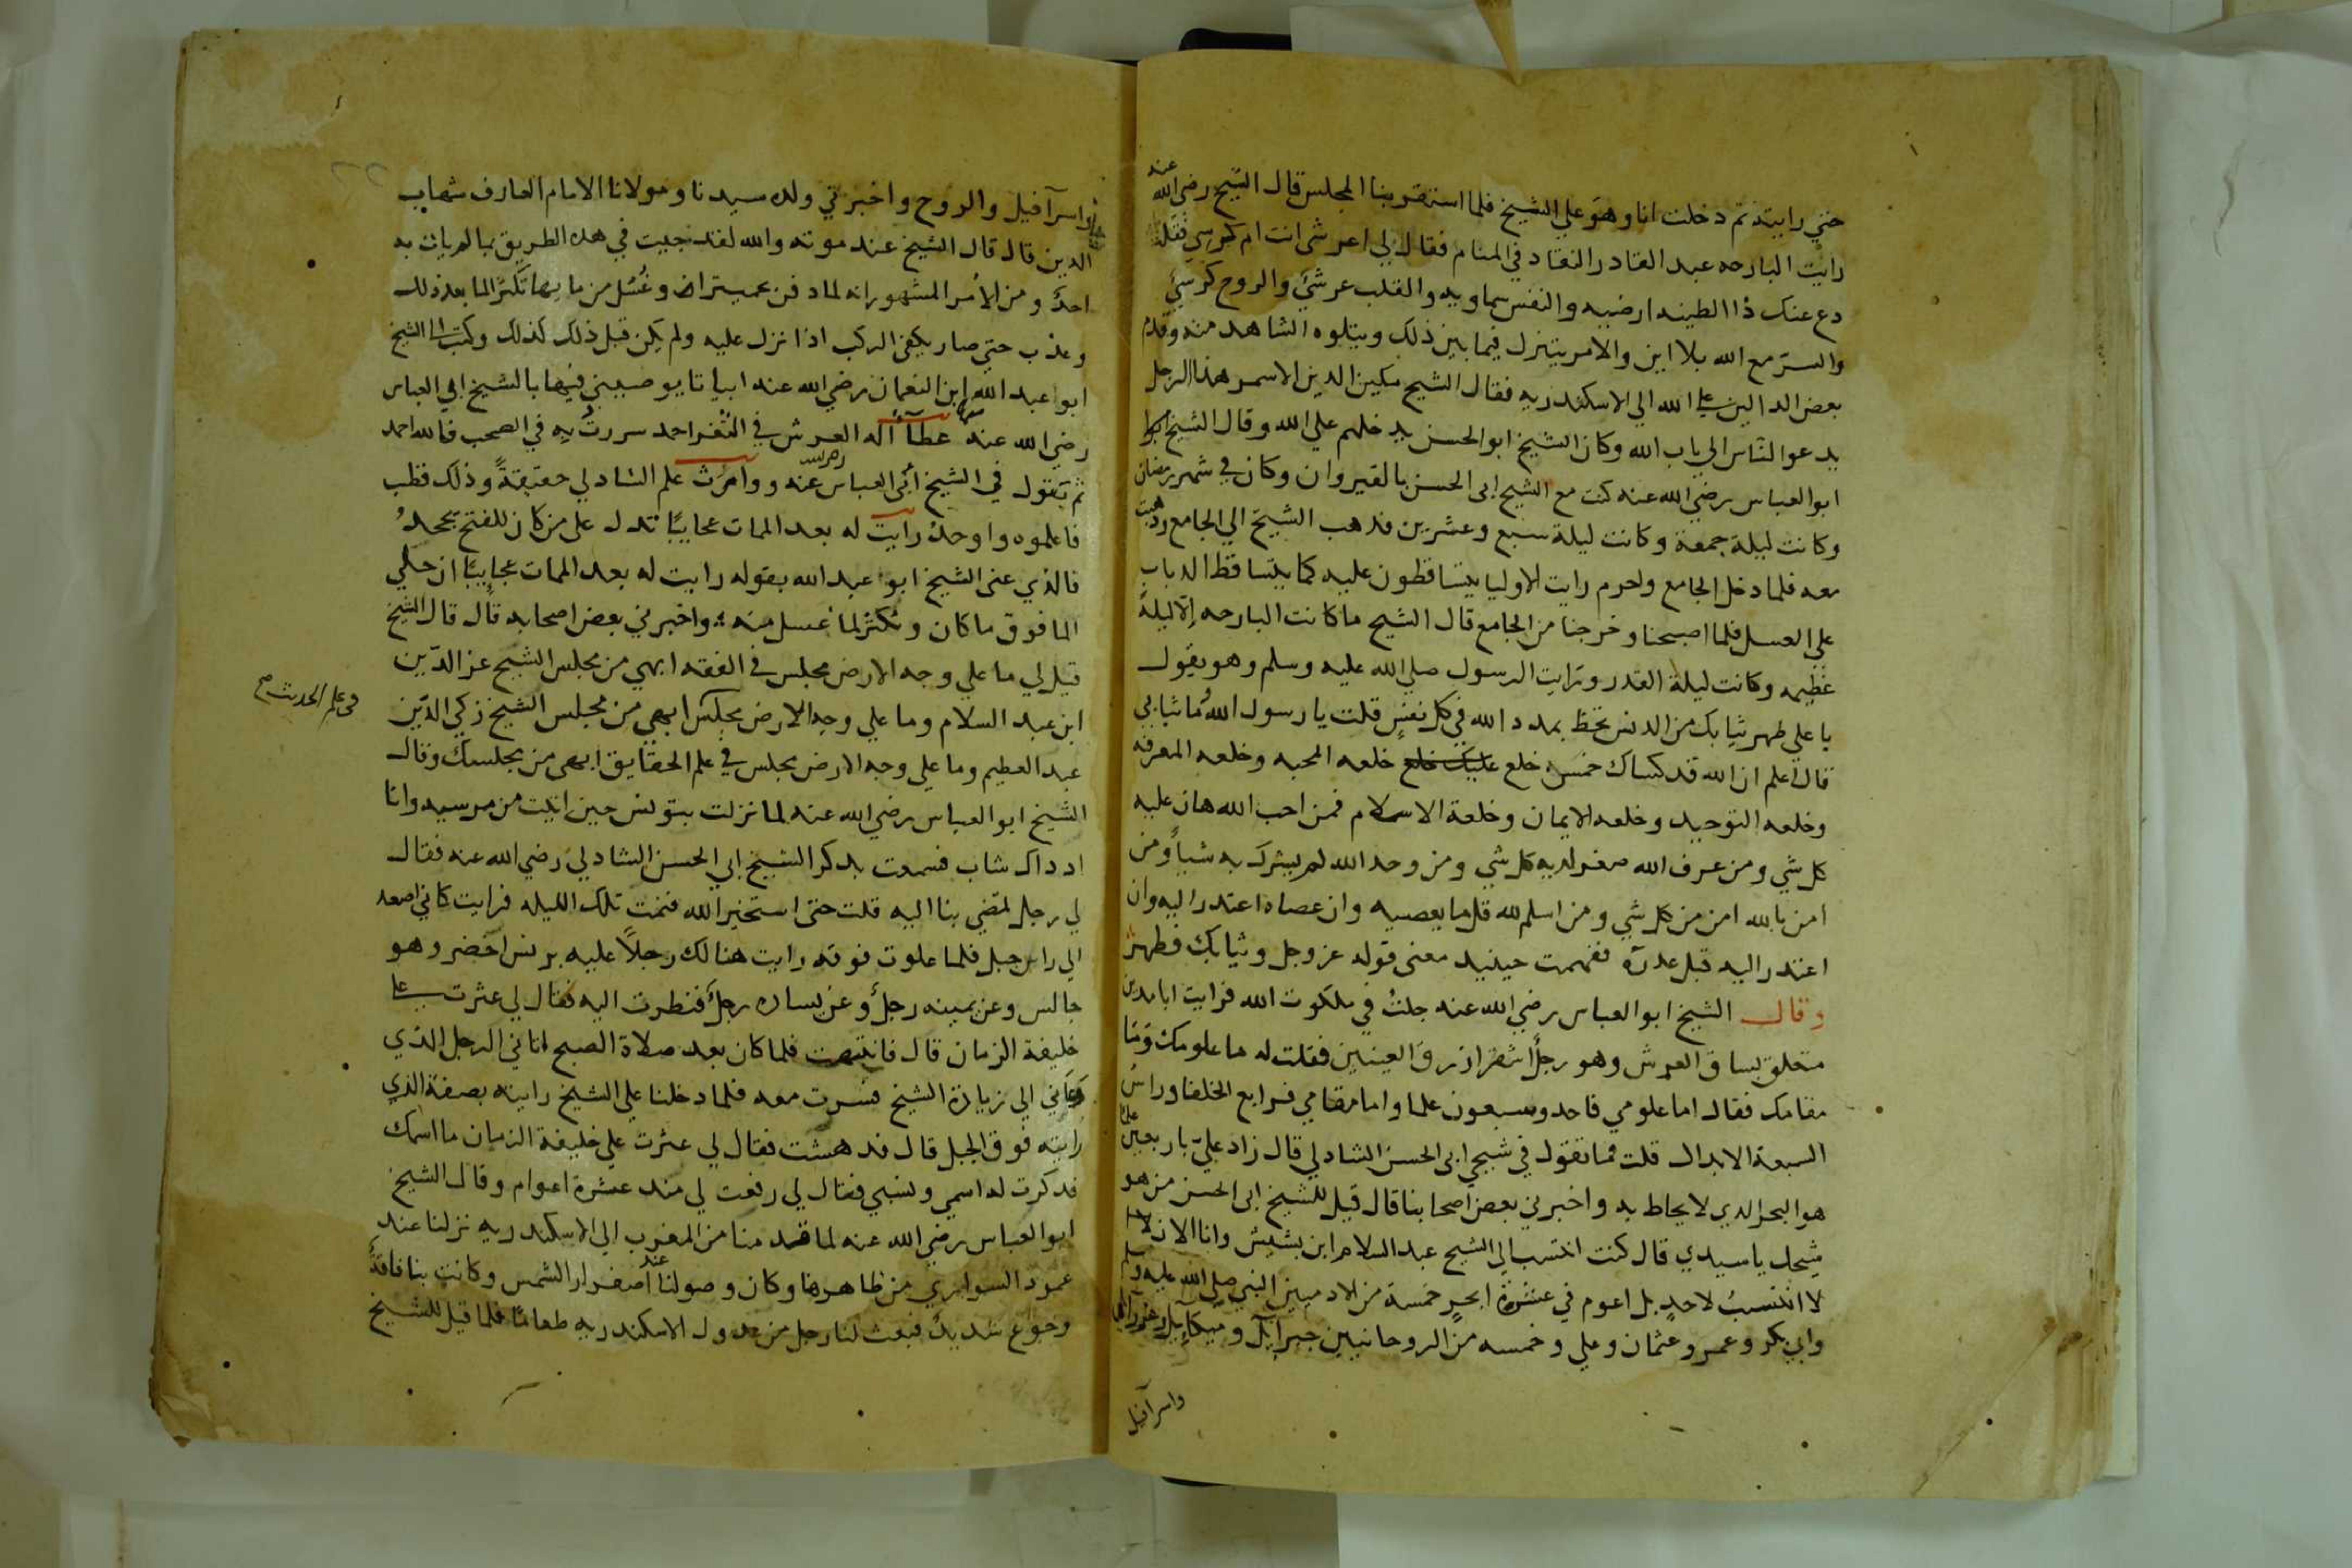 حتي رايته ثم دخلت انا وهو علي الشيخ فلما استقر بنا المجلس قال الشيخ رضي الله عنه
رايت البارحه عبد القادر النقاد في المنام فقال لي اعرشى انت ام كرسي فقلت
دع عنك ذا الطينه ارضيه والنفس سماويه والقلب عرشي والروح كرسي
والسر مع الله بلا اين والامر يتنزل فيما بين ذلك ويتلوه الشاهد منه وقدم
بعض الدالين علي الله الي الاسكندريه فقال الشيخ مكين الدين الاسمر هذا الرجل
يدعوا الناس الي باب الله وكان الشيخ ابو الحسن يدخلهم علي الله وقال الشيخ
ابو العباس رضي الله عنه كنت مع الشيخ ابى الحسن بالقيروان وكان في شهر رمضان
وكانت ليلة جمعة وكانت ليلة سبع وعشرين فدهب الشيخ الي الجامع ودهبت
معه فلما دخل الجامع واحرم رايت الاوليا يتساقطون عليه كما يتساقط الدباب
علي العسل فلما اصبحنا وخرجنا من الجامع قال الشيخ ما كانت البارحه إلا ليلة
عظيمه وكانت ليلة القدر ورايت الرسول صلي الله عليه وسلم وهو يقول
يا علي طهر ثيابك من الدنس تحظ بمدد الله في كل نفس قلت يا رسول الله وما ثيابي
قال اعلم ان الله قد كساك خمس خلع عليك خلع خلعه المحبه وخلعه المعرفه
وخلعه التوحيد وخلعه الايمان وخلعة الاسلام فمن احب الله هان عليه
كل شي ومن عرف الله صغر لديه كل شي ومن وحد الله لم يشرك به شيا ومن
امن بالله امن من كل شي ومن اسلم لله قل ما يعصيه وان عصاه اعتدر اليه وان
اعتدر اليه قبل عدره ففهمت حينيد معنى قوله عز وجل وثيابك فطهر
وقال الشيخ ابو العباس رضي الله عنه جلت في ملكوت الله فرايت ابا مدين
متعلق بساق العرش وهو رجل اشقر ازرق العينين فقلت له ما علومك وما
مقامك فقال اما علومي فاحد وسبعون علما واما مقامي فرابع الخلفا وراس
السبعة الابدال قلت فما تقول في شيخي ابى الحسن الشادلي قال زاد علي باربعين علما
هو البحر الدي لا يحاط به واخبرني بعض اصحابنا قال قيل للشيخ ابى الحسن من هو
شيخك يا سيدي قال كنت انتسب الي الشيخ عبد السلام ابن بشيش وانا الان
لا انتسب لاحد بل اعوم في عشرة ابحر خمسة من الادميين النبي صلي الله عليه وسلم
وابي بكر وعمر وعثمان وعلي وخمسه من الروحانيين جبرايل وميكايل وعزرايل
واسرافيل
واسرافيل والروح واخبرني ولده سيدنا ومولانا الامام العارف شهاب
الدين قال قال الشيخ عند موته والله لقد جيت في هده الطريق بما لم يات به
احد ومن الامر المشهور انه لما دفن بحميتراه وغسل من مايها تكثر الما بعد ذلك
وعذب حتي صار يكفي الركب اذا نزل عليه ولم يكن قبل ذلك كذلك وكتب الي الشيخ
ابو عبد الله ابن النعمان رضي الله عنه ابياتا يوصيني فيها بالشيخ ابي العباس
رضي الله عنه عطآ اله العرش في الثغر احمد سررت به في الصحب فالله احمد
ثم يقول في الشيخ ابى العباس رضي الله عنه ووارث علم الشادلي حقيقة وذلك قطب
فاعلموه واوحد رايت له بعد الممات عجايبا تدل علي من كان للفتح يجحد
فالذي عنى الشيخ ابو عبد الله بقوله رايت له بعد الممات عجايبا ان حلي
الما فوق ما كان وتكثر لما غسل منه واخبرني بعض اصحابه قال قال الشيخ
قيل لي ما علي وجه الارض مجلس في الفقه ابهي من مجلس الشيخ عز الدين
ابن عبد السلام وما علي وجه الارض مجلس ابهي من مجلس الشيخ زكي الدين
في علم الحديث صح
عبد العظيم وما علي وجه الارض مجلس في علم الحقايق ابهى من مجلسك وقال
الشيخ ابو العباس رضي الله عنه لما نزلت بتونس حين اتيت من مرسيه وانا
اد داك شاب فسمعت بدكر الشيخ ابي الحسن الشادلي رضي الله عنه فقال
لي رجل تمضي بنا اليه قلت حتى استخير الله فنمت تلك الليله فرايت كاني اصعد
الي راس جبل فلما علوت فوقه رايت هنالك رجلا عليه برنس اخضر وهو
جالس وعن يمينه رجل وعن يساره رجل فنظرت اليه فقال لي عثرت علي
خليفة الزمان قال فانتبهت فلما كان بعد صلاة الصبح اتاني الرجل الذي
دعاني الي زيارة الشيخ فسرت معه فلما دخلنا علي الشيخ رايته بصفة الذي
رايته فوق الجبل قال فدهشت فقال لي عثرت علي خليفة الزمان ما اسمك
فدكرت له اسمي ونسبي فقال لي رفعت لي مند عشرة اعوام وقال الشيخ
ابو العباس رضي الله عنه لما قدمنا من المغرب الي الاسكندريه نزلنا عند
عمود السواري من ظاهرها وكان وصولنا عند اصفرار الشمس وكانت بنا فاقة
وجوع شديد فبعث لنا رجل من عدول الاسكندريه طعاما فلما قيل للشيخ